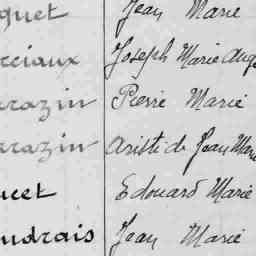 quet Jean Marie
rciaux Joseph Marie Ange
arazin Pierre Marie
arazin Aristide Jean Marie
ucet Edouard Marie
udrais Jean Marie